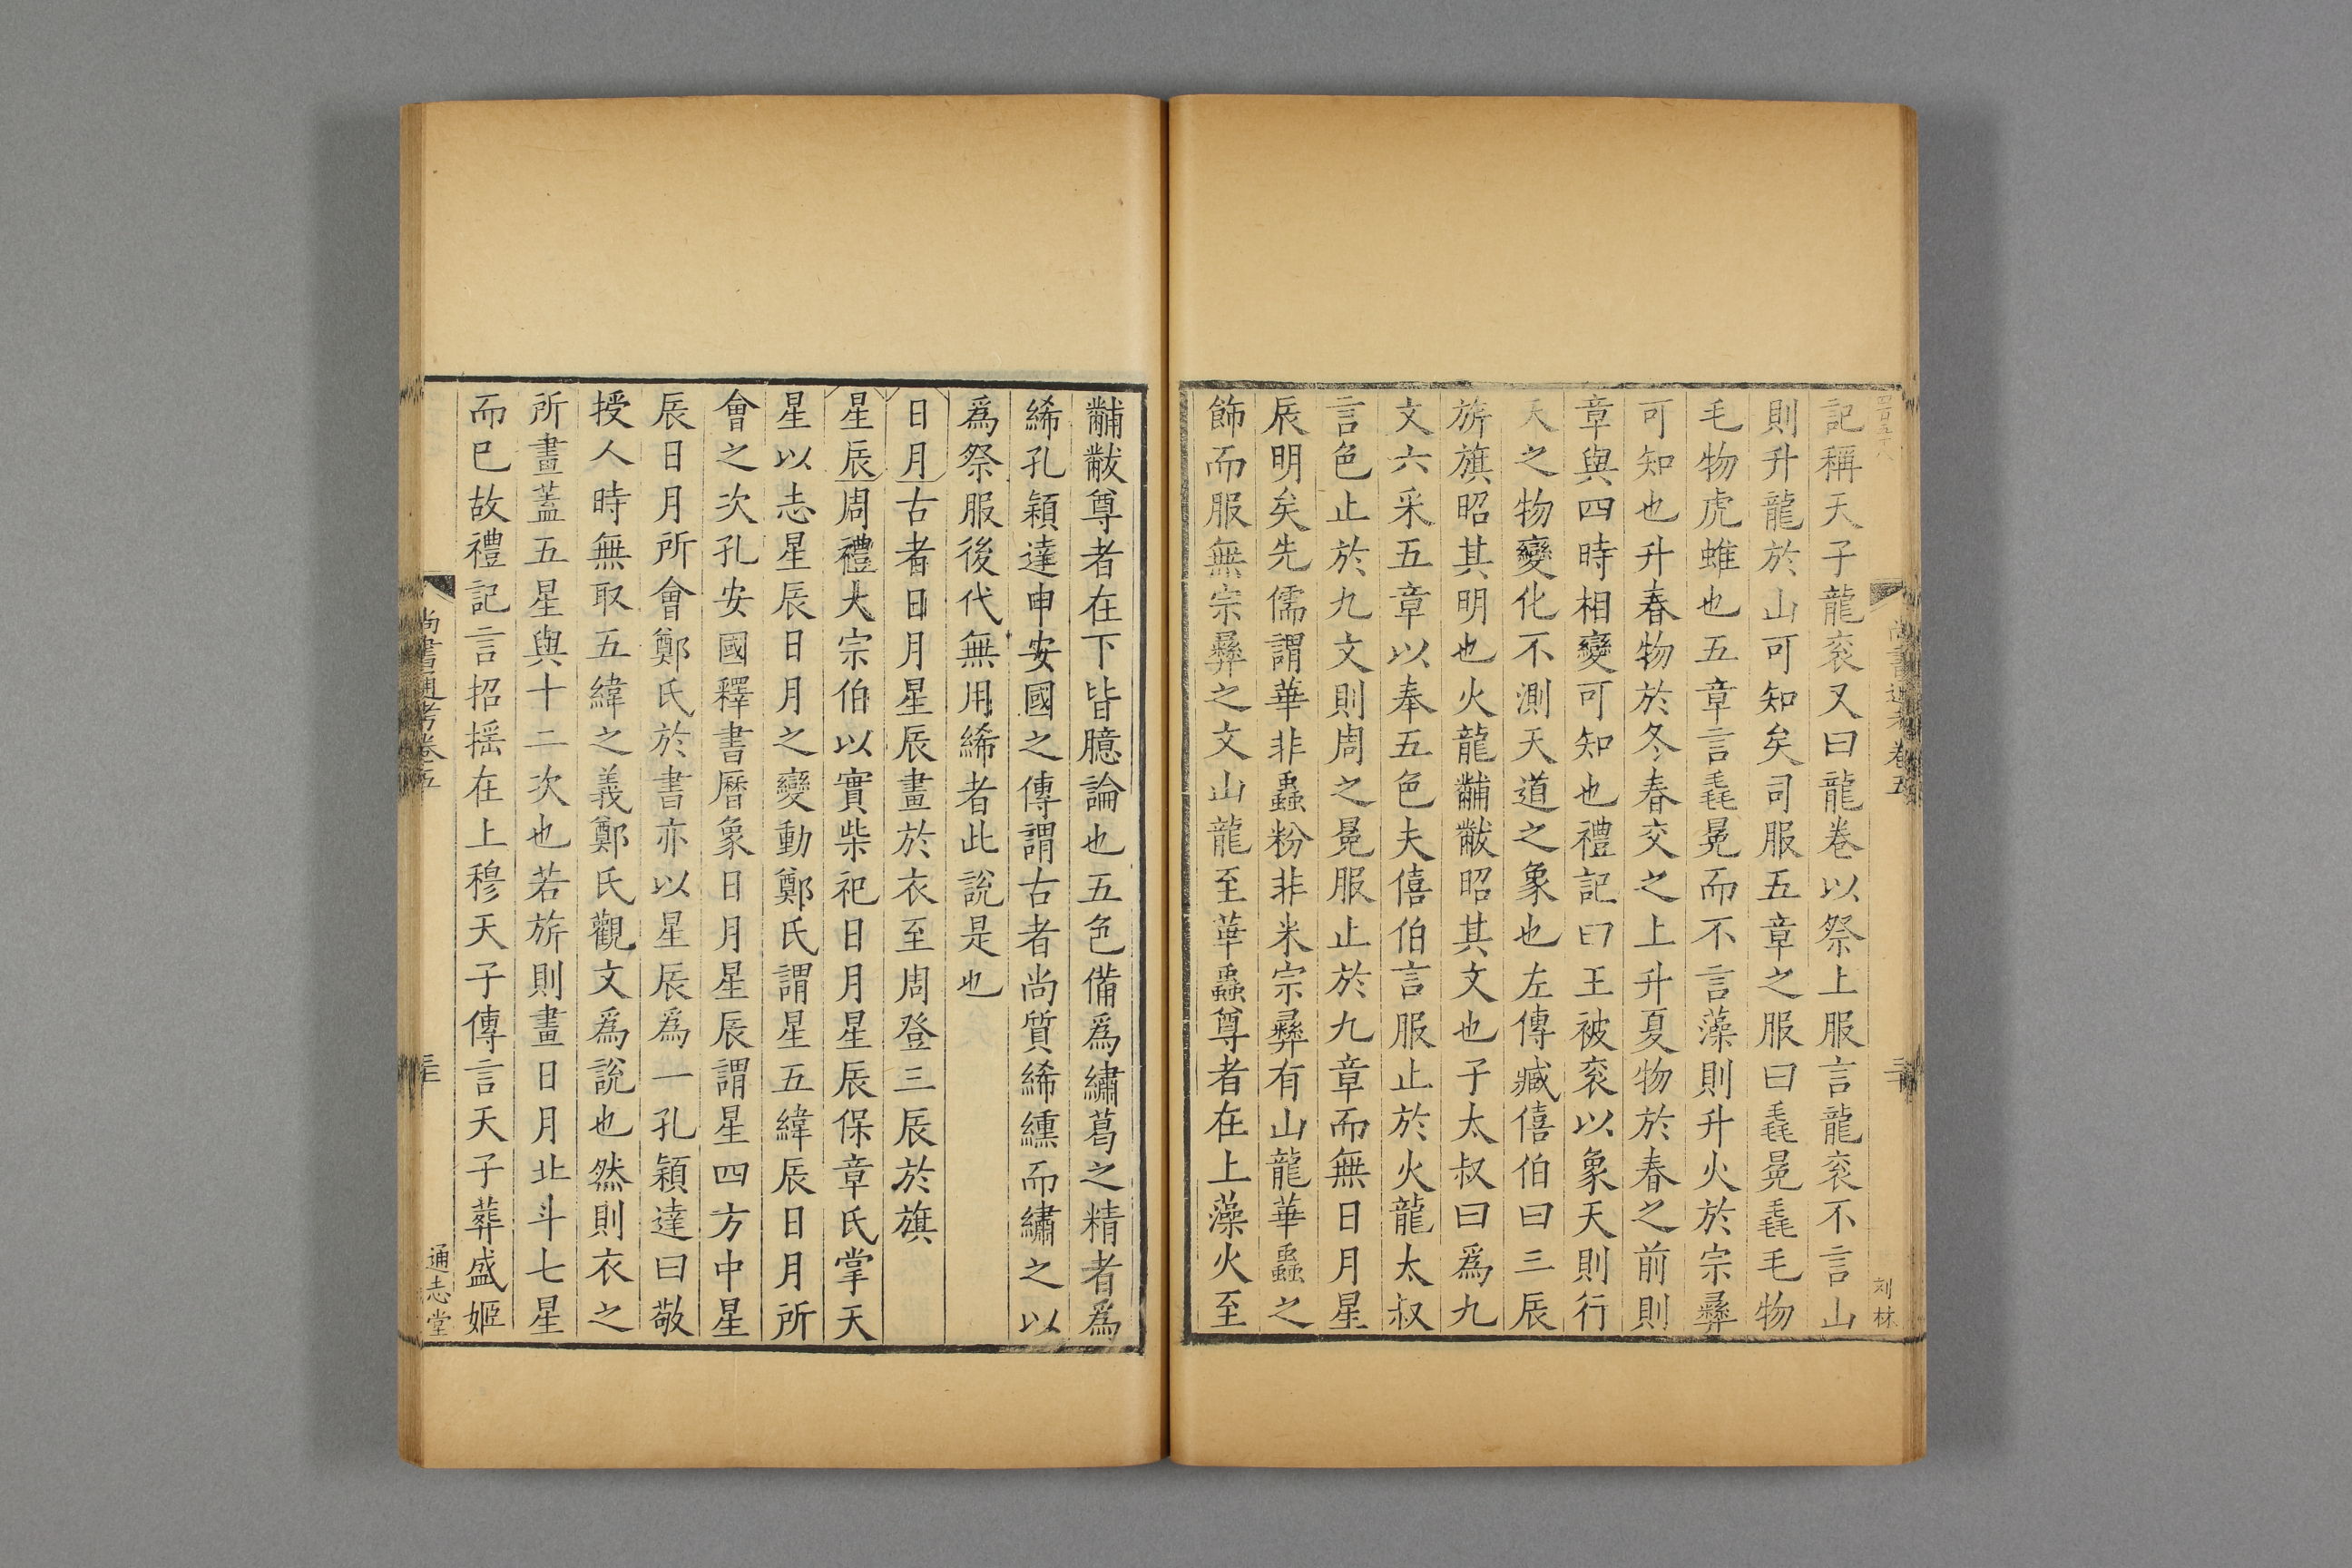 記稱天子龍衮又曰龍卷以祭上服言龍衮不言山
則升龍於山可知矣司服五章之服曰毳冕毳毛物
毛物虎蜼也五章言毳冕而不言藻則升火於宗彝
可知也升春物於冬春交之上升夏物於春之前則
章與四時相變可知也禮記曰王被衮以象天則行
天之物變化不測天道之象也左傳臧僖伯曰三辰
旂旗昭其明也火龍黼黻昭其文也子太叔曰爲九
文六采五章以奉五色夫僖伯言服止於火龍太叔
言色止於九文則周之冕服止於九章而無日月星
辰明矣先儒謂華非蟲粉非米宗彝有山龍華蟲之
飾而服無宗彝之文山龍至華蟲尊者在上藻火至
尚書通考卷五
刘林
黼黻尊者在下皆臆論也五色備爲繡葛之精者爲
絺孔穎達申安國之傳謂古者尚質絺纁而繡之以
爲祭服後代無用絺者此說是也
日月古者日月星辰畫於衣至周登三辰於旗
星辰周禮大宗伯以實柴祀日月星辰保章氏掌天
星以志星辰日月之變動鄭氏謂星五緯辰日月所
會之次孔安國釋書曆象日月星辰謂星四方中星
辰日月所會鄭氏於書亦以星辰爲一孔穎達曰敬
授人時無取五緯之義鄭氏觀文爲說也然則衣之
所畫蓋五星與十二次也若旂則畫日月北斗七星
而已故禮記言招搖在上穆天子傳言天子葬盛姬
尚書通考卷五
通志堂